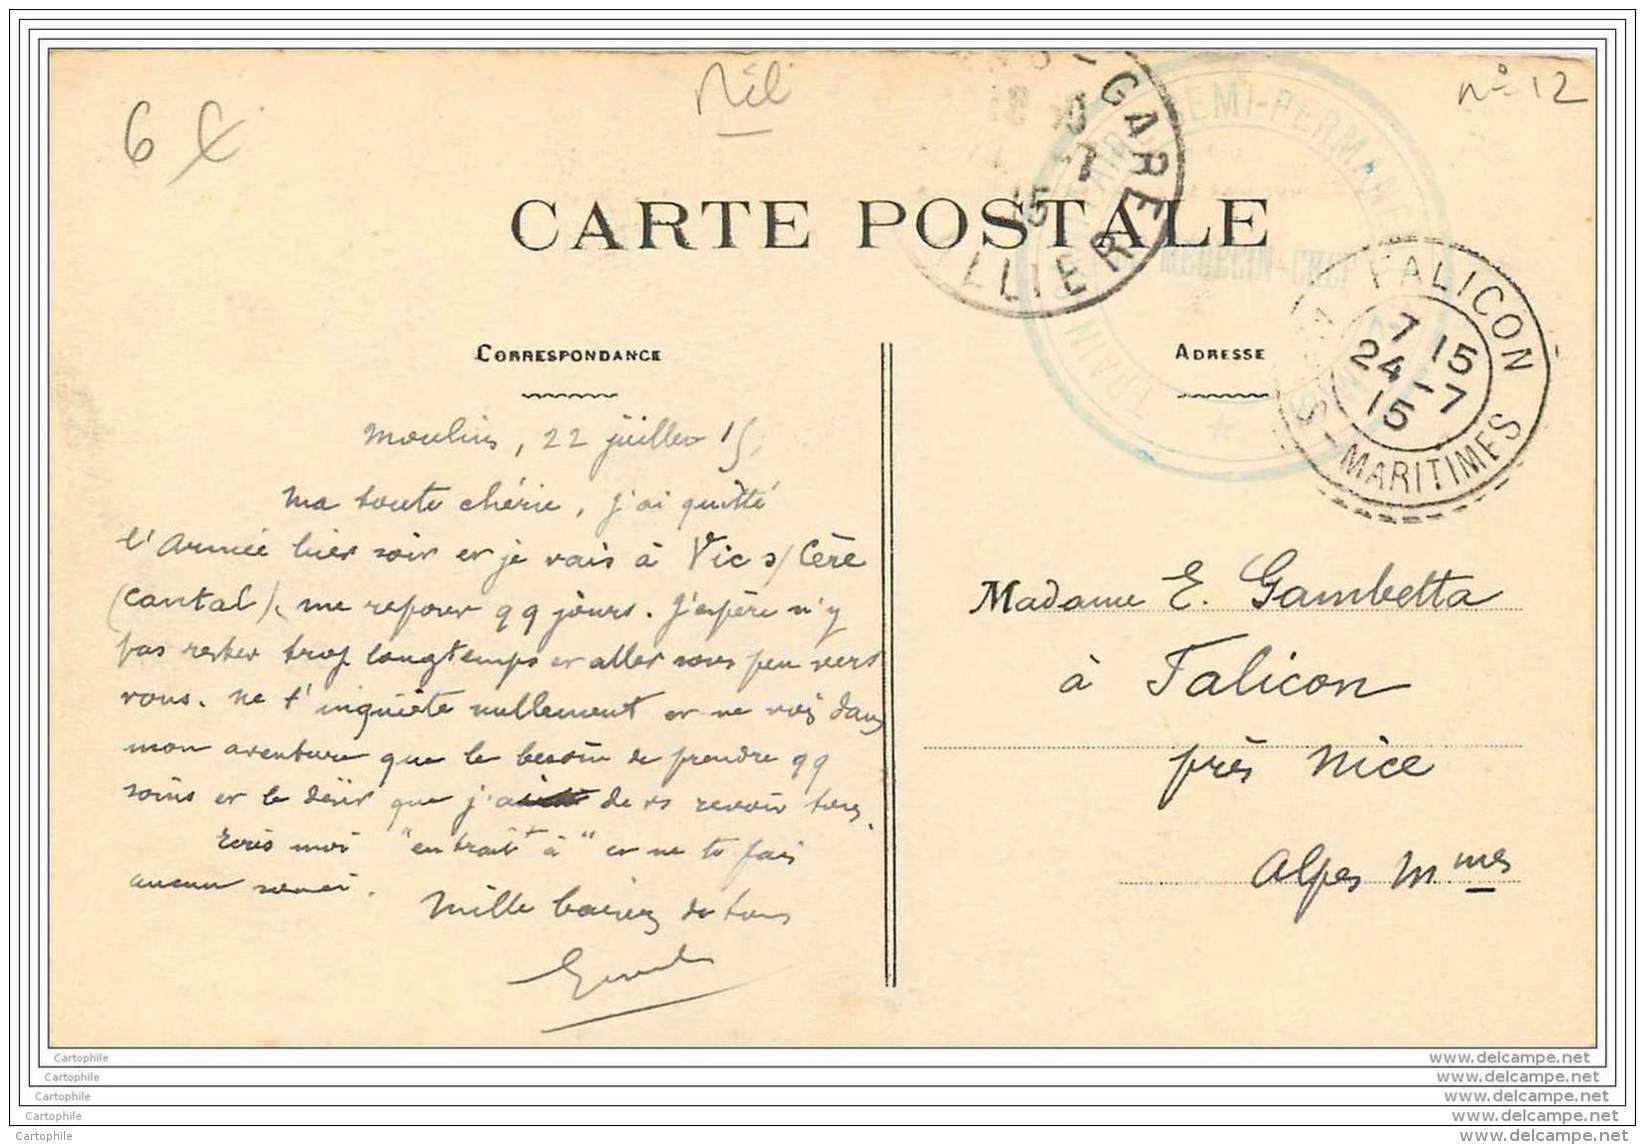 6 €
Nil
n° 12
GARE
ALLIER
15
TRAIN SANITAIRE SEMI-PERMANENT
MÉDECIN-CHEF
FALICON
7 15
24-7
15
S-MARITIMES
CARTE POSTALE
CORRESPONDANCE
ADRESSE
Moulins, 22 juillet 15,
Ma toute chérie, j'ai quitté
l'Armée hier soir et je vais à Vic s/ Cère
(Cantal), me reposer qq jours. J'espère n'y
pas rester trop longtemps et aller sous peu vers
vous. Ne t'inquiète nullement et ne vois dans
mon aventure que le besoin de prendre qq
soins et le désir que j'ai de vs revoir tous.
Ecris moi "en trait à" et ne te fais
aucun souci.
Mille baisers de tous
Madame E. Gambetta
à Falicon
près Nice
Alpes Mmes
Cartophile
Cartophile
Cartophile
Cartophile
Cartophile
www.delcampe.net
www.delcampe.net
www.delcampe.net
www.delcampe.net
www.delcampe.net